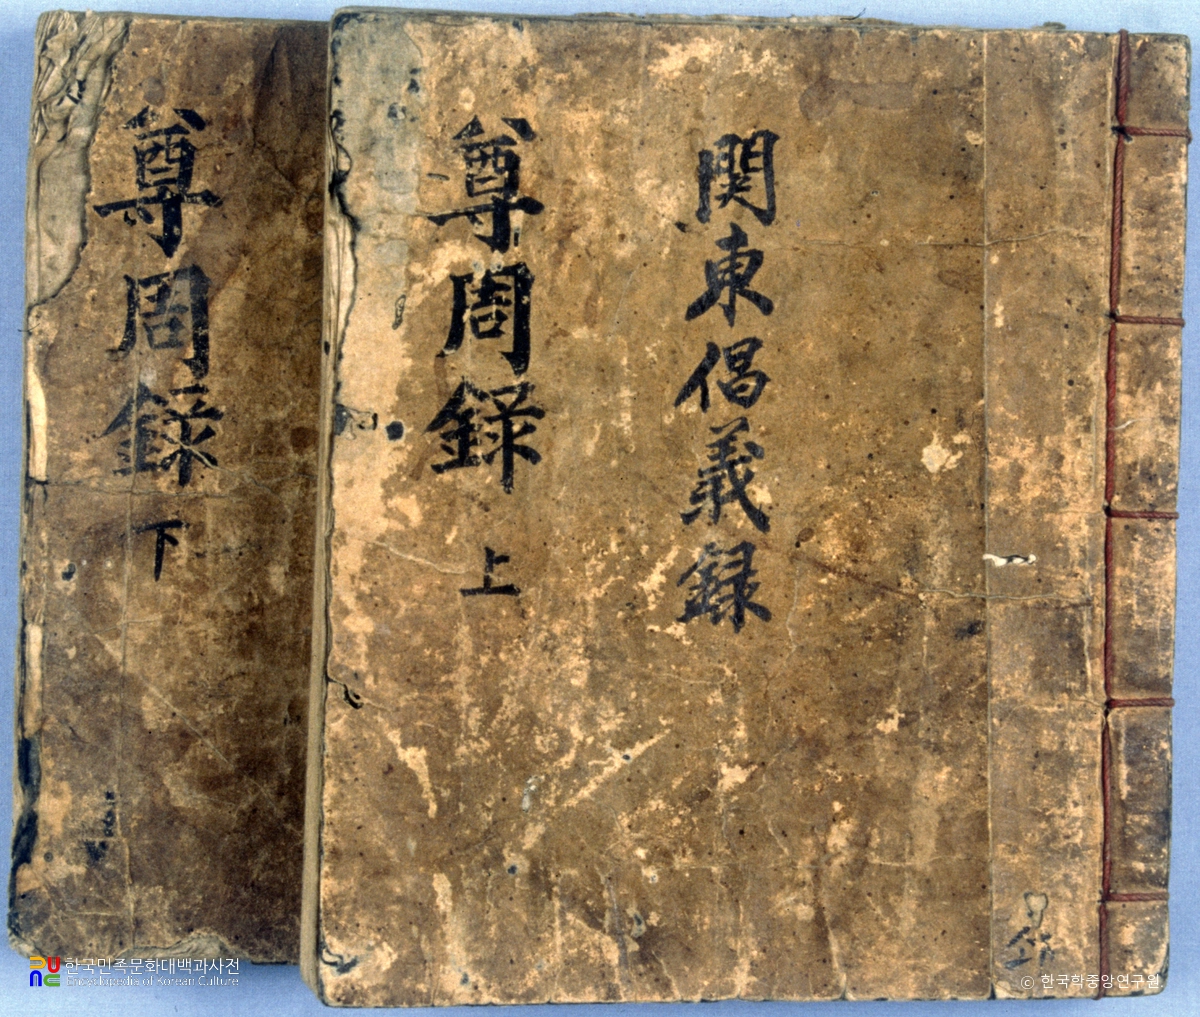 関東倡義錄
尊周錄 上
尊周錄 下
한국민족문화대백과사전
Encyclopedia of Korean Culture
© 한국학중앙연구원